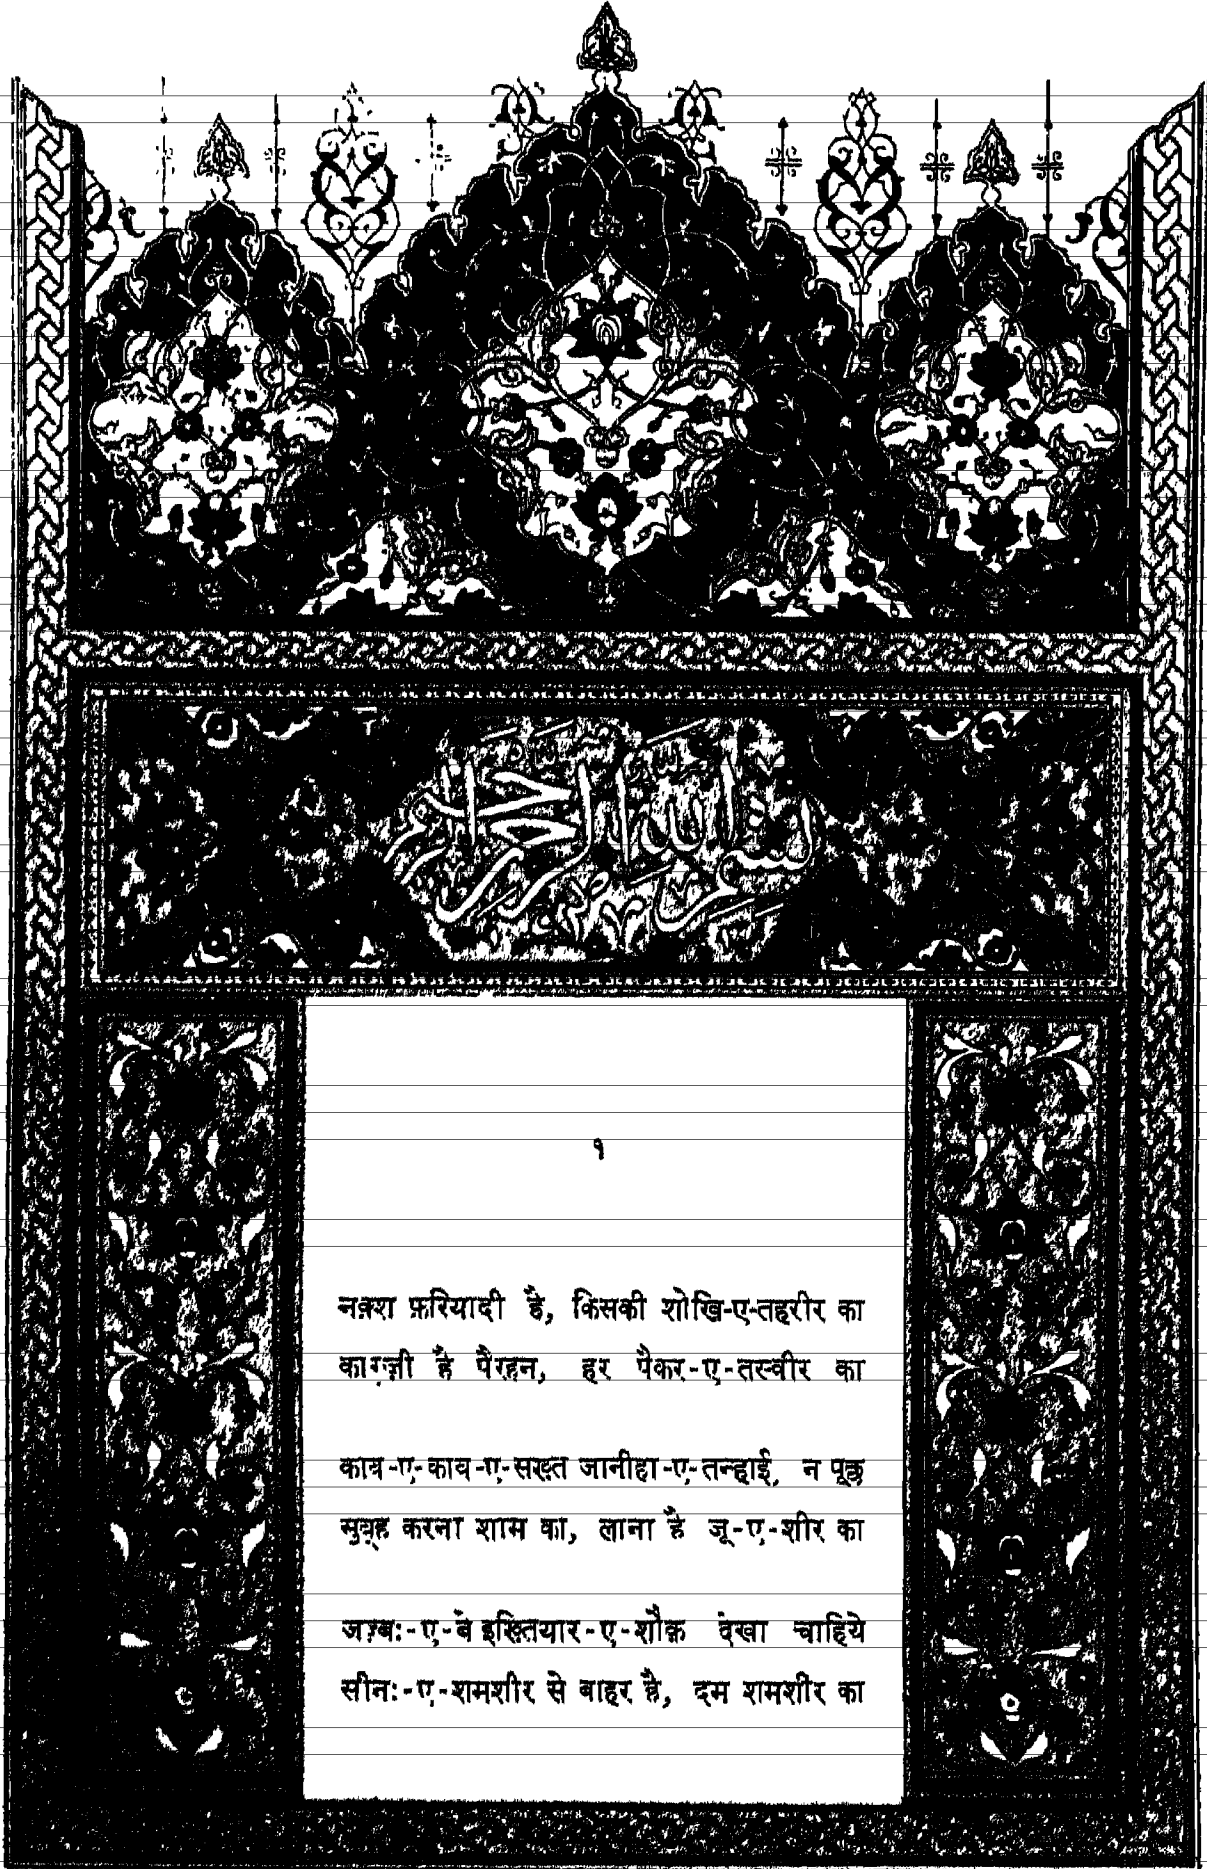 بسم الله الرحمن الرحيم
१
नक़्श फ़रियादी है, किसकी शोखि-ए-तहरीर का
काग़ज़ी है पैरहन, हर पैकर-ए-तस्वीर का
काव-ए-काव-ए-सख़्त जानीहा-ए-तन्हाई, न पूछ
सुबह करना शाम का, लाना है जू-ए-शीर का
जज़्बः-ए-बे इख़्तियार-ए-शौक़ देखा चाहिये
सीनः-ए-शमशीर से बाहर है, दम शमशीर का